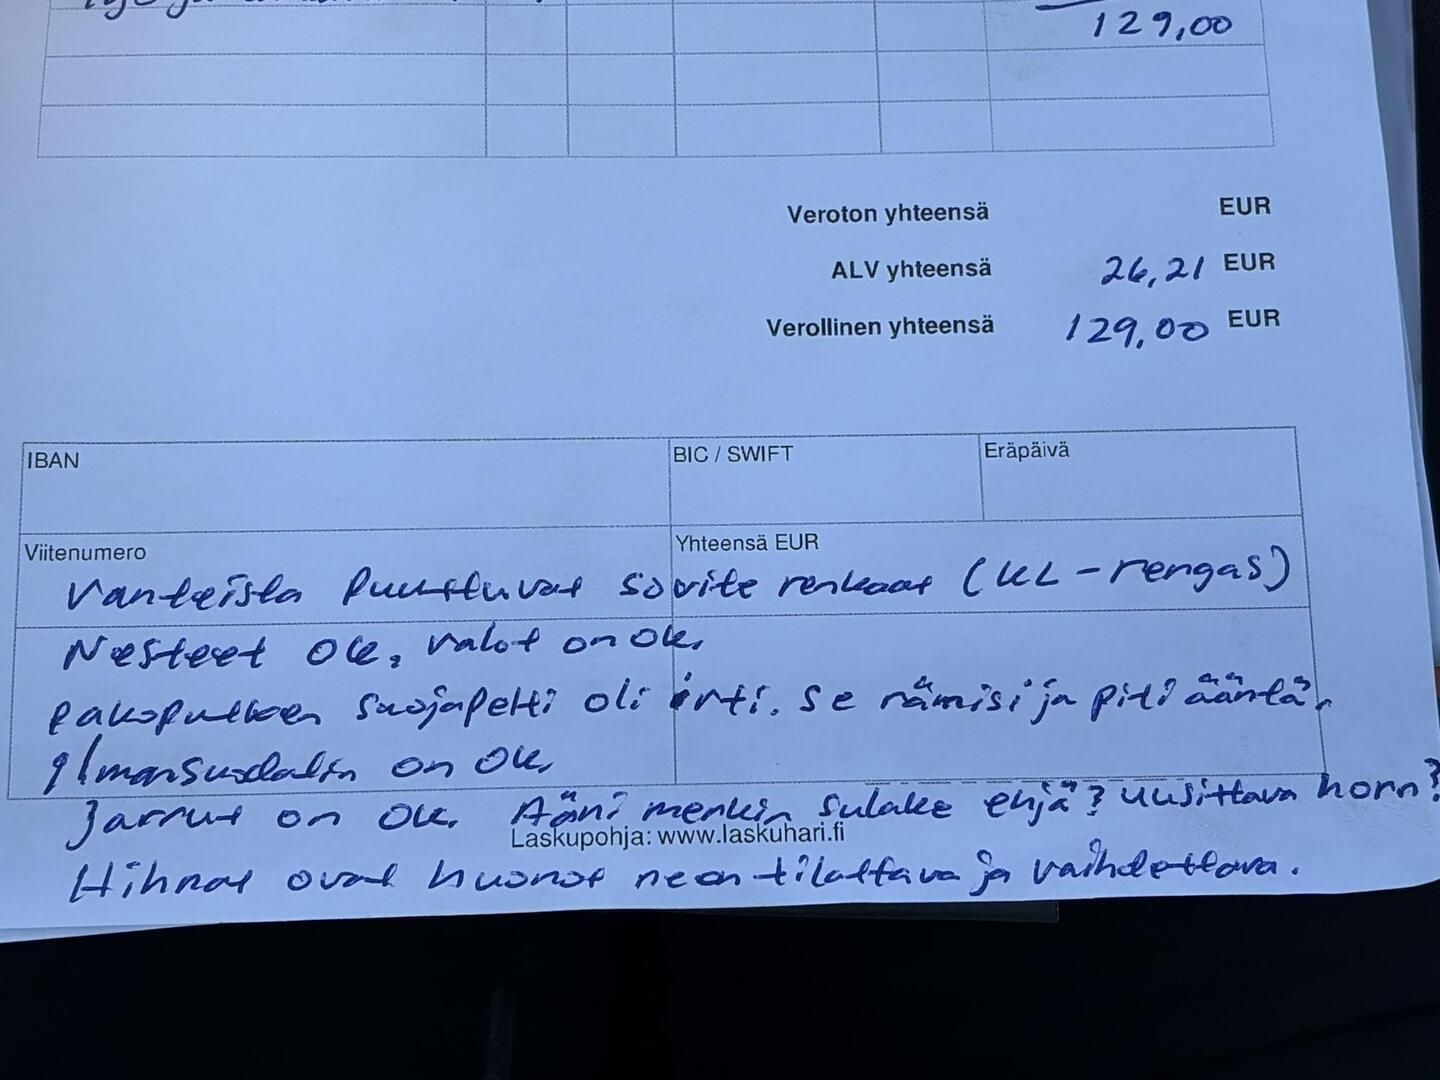 129,00
Veroton yhteensä EUR
ALV yhteensä 26,21 EUR
Verollinen yhteensä 129,00 EUR
IBAN BIC / SWIFT Eräpäivä
Viitenumero Yhteensä EUR
Vanteista puuttuvat sovite renkaat (KL-rengas)
Nesteet ok, valot on ok.
pakoputken suojapelti oli irti. se rämisi ja piti ääntä.
Ilmansuodatin on ok.
Jarrut on ok. Ääni merkin sulake ehjä? uusittava horn?
Laskupohja: www.laskuhari.fi
Hihnat ovat huonot ne on tilattava ja vaihdettava.